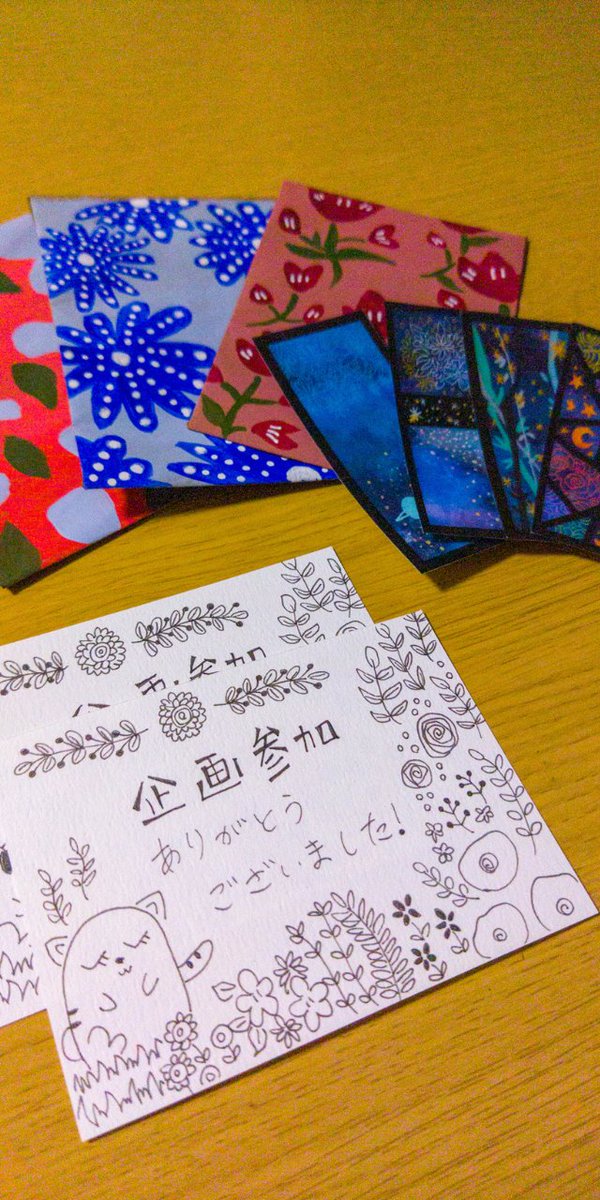 企画参加
企画参加
ありがとう
ございました!